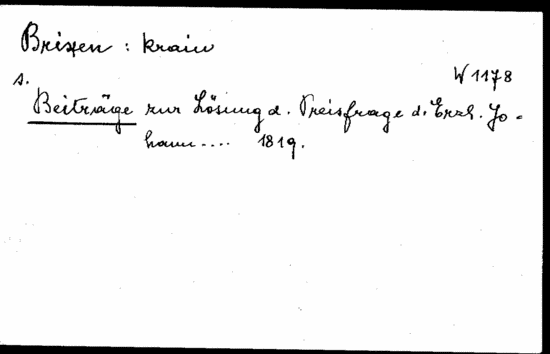 Brixen : Krain
s.
W 1178
Beiträge zur Lösung d. Preisfrage d. Erzh. Jo-
hann .... 1819.